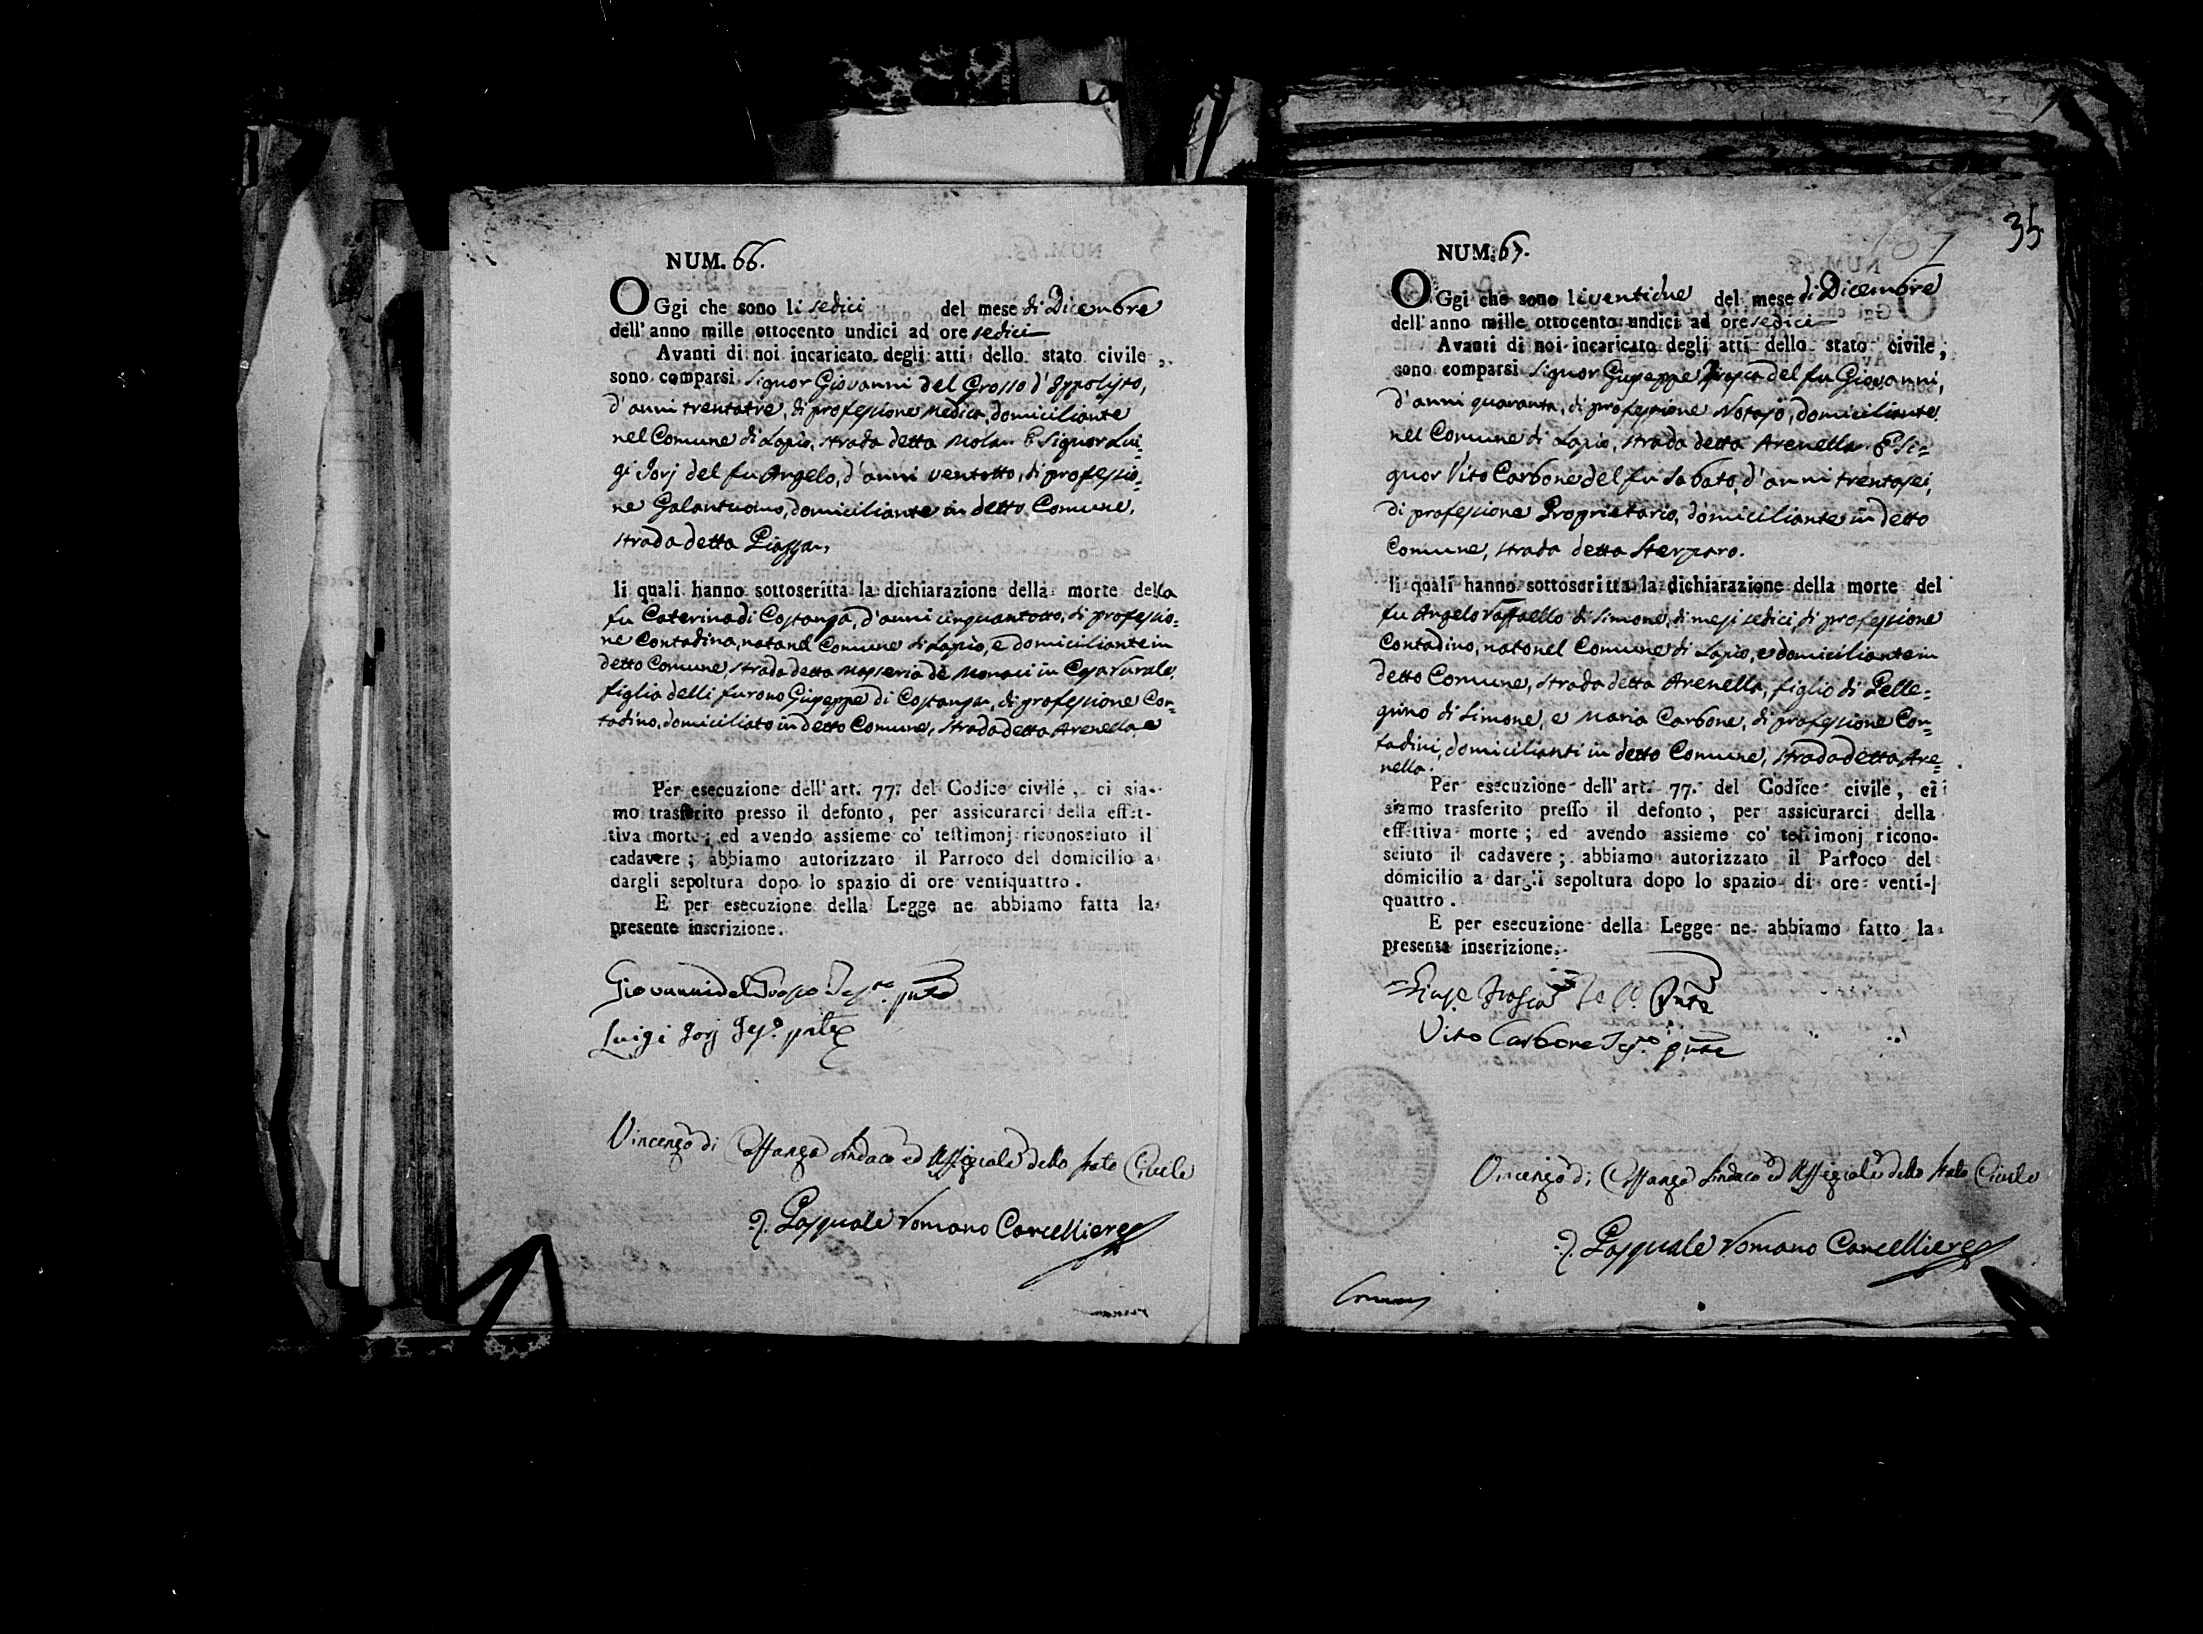 NUM. 66.
OGgi che sono li sedici del mese di Dicembre
dell'anno mille ottocento undici ad ore sedici
Avanti di noi incaricato degli atti dello stato civile,
sono comparsi Signor Giovanni del Grosso d'Ippolito,
d'anni trentatre, di professione Medico, domiciliante
nel Comune di Lapio, strada detta Mola. E Signor Lui=
gi Jorj del fu Angelo, d'anni ventotto, di professio=
ne Galantuomo, domiciliante in detto Comune,
strada detta Piazza,
li quali hanno sottoscritta la dichiarazione della morte della
fu Caterina di Costanza, d'anni cinquantotto, di professio=
ne Contadina, nata nel Comune di Lapio, e domiciliante in
detto Comune, strada detta Masseria de Monaci in Casa rurale,
figlia delli furono Giuseppe di Costanza, di professione Con=
tadino, domiciliato in detto Comune, strada detta Arenella e
Per esecuzione dell'art. 77. del Codice civile, ci sia-
mo trasferito presso il defonto, per assicurarci della effet-
tiva morte; ed avendo assieme co' testimonj riconosciuto il
cadavere; abbiamo autorizzato il Parroco del domicilio a
dargli sepoltura dopo lo spazio di ore ventiquattro.
E per esecuzione della Legge ne abbiamo fatta la
presente inscrizione.
Giovanni del Grosso Tes.ne pnte
Luigi Jorj Tes.o pnte
Vincenzo di Costanza Sindaco ed Uffiziale dello stato Civile
D. Pasquale Romano Cancelliere
35
NUM. 67.
OGgi che sono li ventidue del mese di Dicembre
dell'anno mille ottocento undici ad ore sedici
Avanti di noi incaricato degli atti dello stato civile,
sono comparsi Signor Giuseppe del fu Giovanni,
d'anni quaranta, di professione Notajo, domiciliante
nel Comune di Lapio, strada detta Arenella. E Si=
gnor Vito Carbone del fu Sabato, d'anni trentasei,
di professione Proprietario, domiciliante in detto
Comune, strada detta Sterparo.
li quali hanno sottoscritta la dichiarazione della morte del
fu Angelo Raffaello di Simone, di mesi sedici, di professione
Contadino, nato nel Comune di Lapio, e domiciliante in
detto Comune, strada detta Arenella, figlio di Pelle=
grino di Simone, e Maria Carbone, di professione Con=
tadini, domicilianti in detto Comune, strada detta Are=
nella.
Per esecuzione dell'art. 77. del Codice civile, ci
siamo trasferito presso il defonto, per assicurarci della
effettiva morte; ed avendo assieme co' testimonj ricono-
sciuto il cadavere; abbiamo autorizzato il Parroco del
domicilio a dargli sepoltura dopo lo spazio di ore venti-
quattro.
E per esecuzione della Legge ne abbiamo fatto la
presente inscrizione.
Vito Carbone Tes.o pnte
Vincenzo di Costanza Sindaco ed Uffiziale dello stato Civile
D. Pasquale Romano Cancelliere